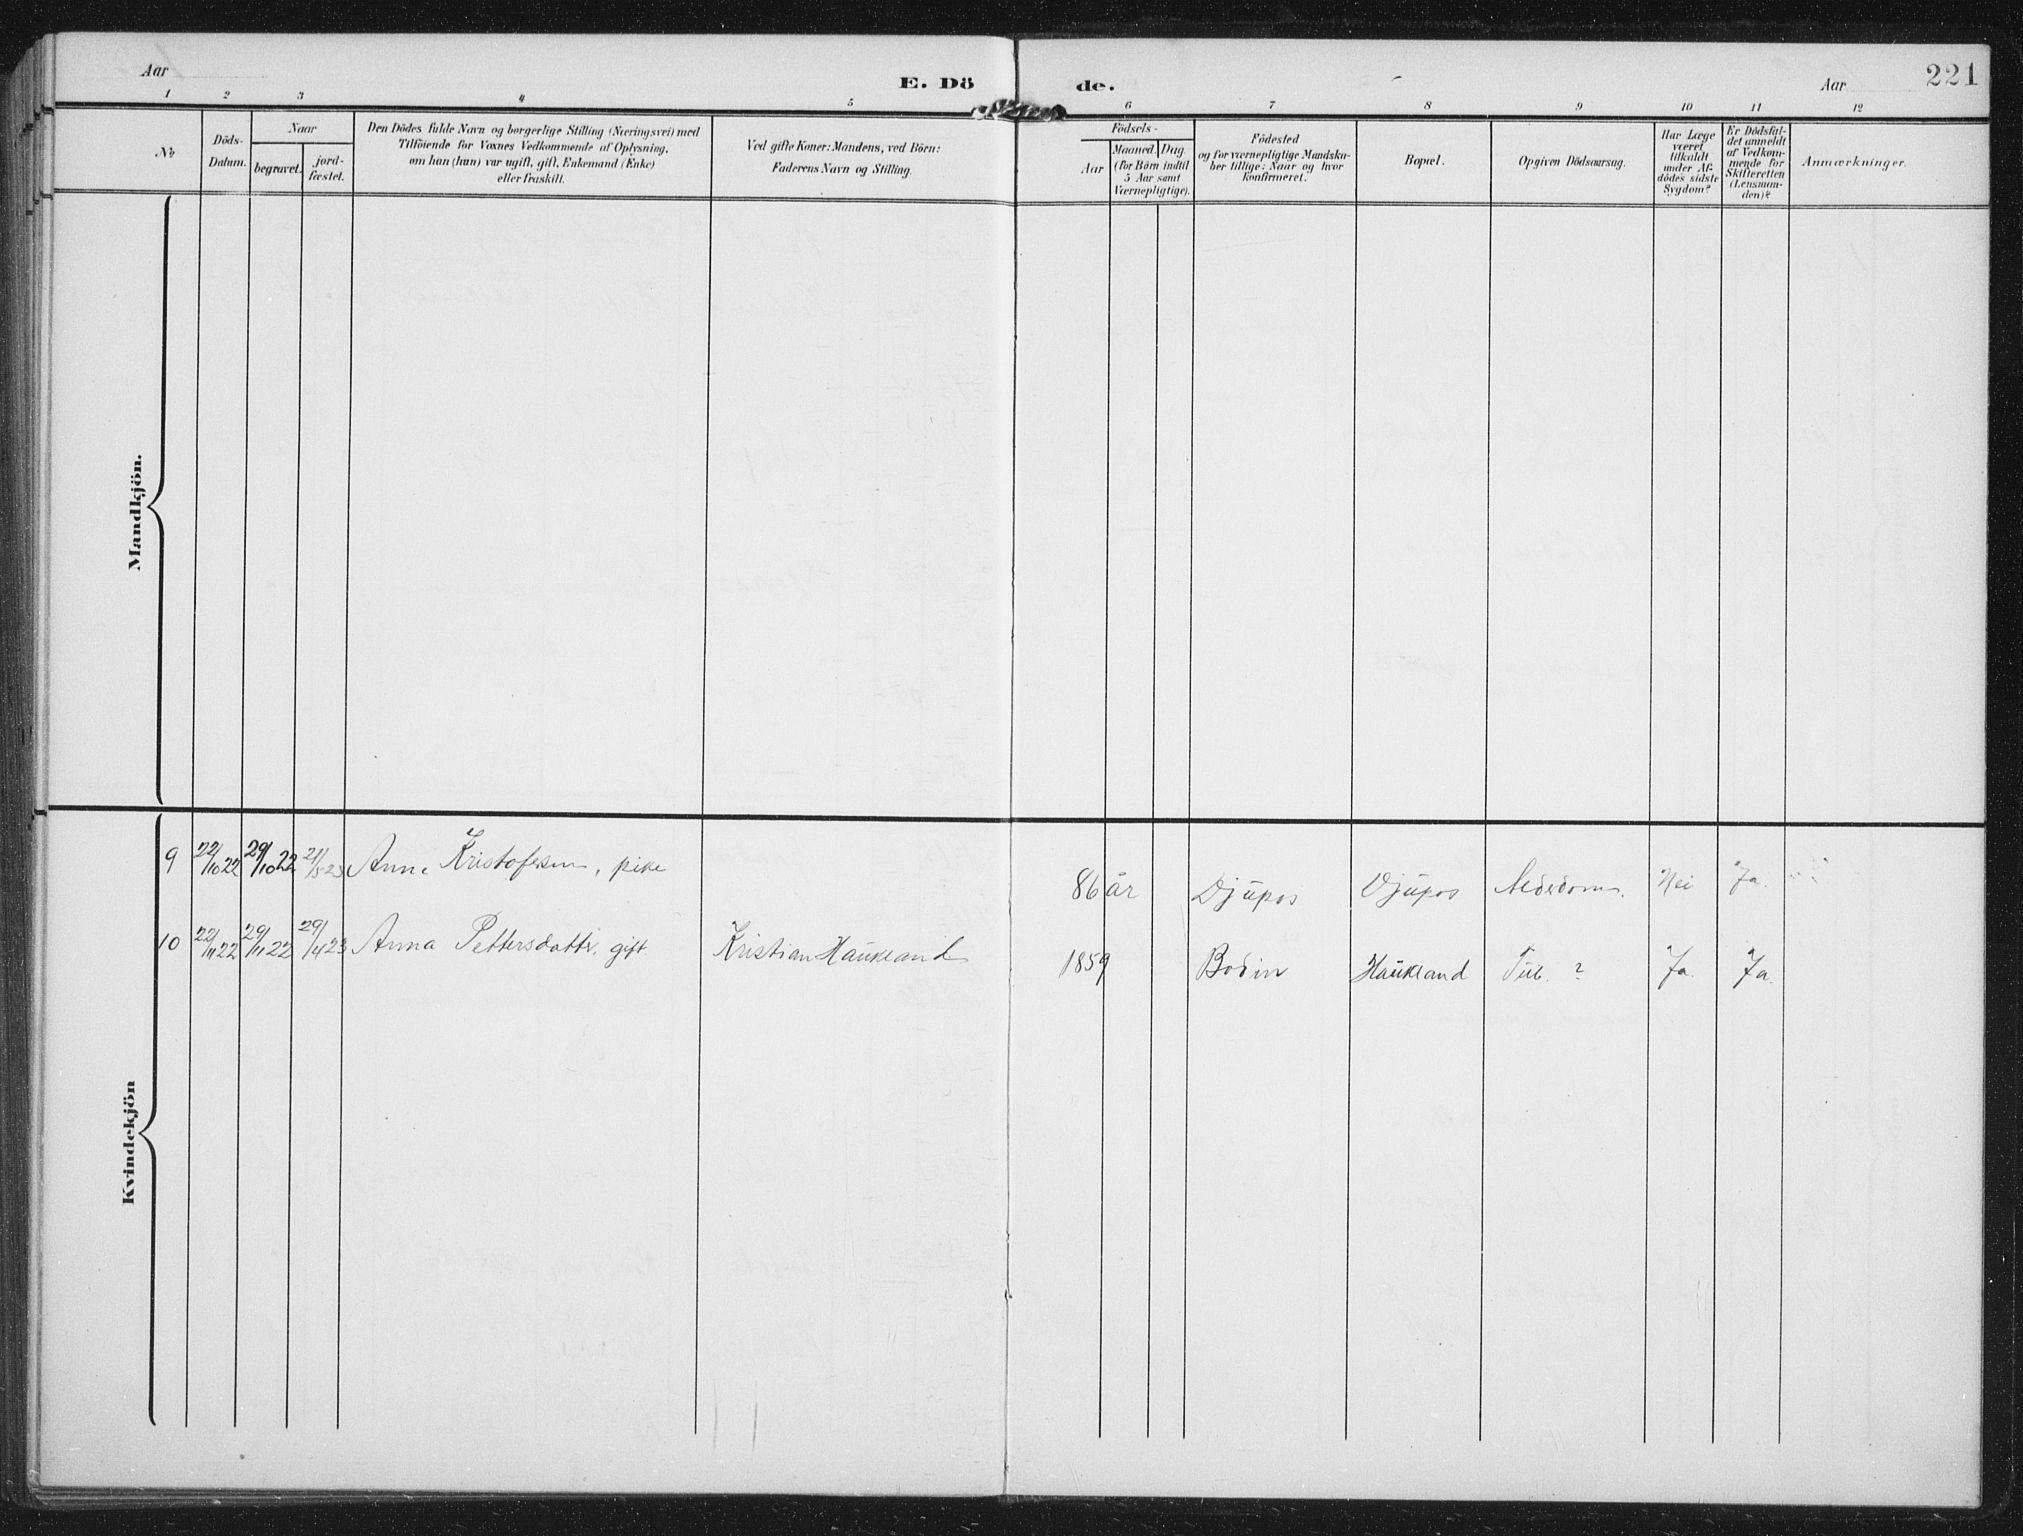 Aar
E. Dö
de.
Aar
221
1 2 3 4 5 6 7 8 9 10 11 12
No
Döds-
Datum.
Naar
begravet.
jord-
fæstet.
Den Dödes fulde Navn og borgerlige Stilling (Næringsvei) med
Tilföiende for Voxnes Vedkommende af Oplysning,
om han (hun) var ugift, gift, Enkemand (Enke)
eller fraskilt.
Ved gifte Koner: Mandens, ved Börn:
Faderens Navn og Stilling.
Födsels-
Aar
Maaned. Dag.
(for Börn indtil
5 Aar samt
Værnepligtige).
Födested
og for værnepligtige Mandska-
ber tillige: Naar og hvor
konfirmeret.
Bopæl.
Opgiven Dödsaarsag.
Har Læge
været
tilkaldt
under Af-
dödes sidste
Sygdom?
Er Dödsfal-
det anmeldt
af Vedkom-
mende for
Skifteretten
(Lensman-
den)?
Anmærkninger.
Mandkjön.
Kvindekjön
9 22/10 22 29/10 22 21/5 23 Anna Kristofersen, pike 86 år Djupos Djupos Alderdom. Nei Ja.
10 22/11 22 29/11 22 29/4 23 Anna Pettersdatter, gift. Kristian Haukland 1859 Bodin Haukland Tub. ? Ja. Ja.